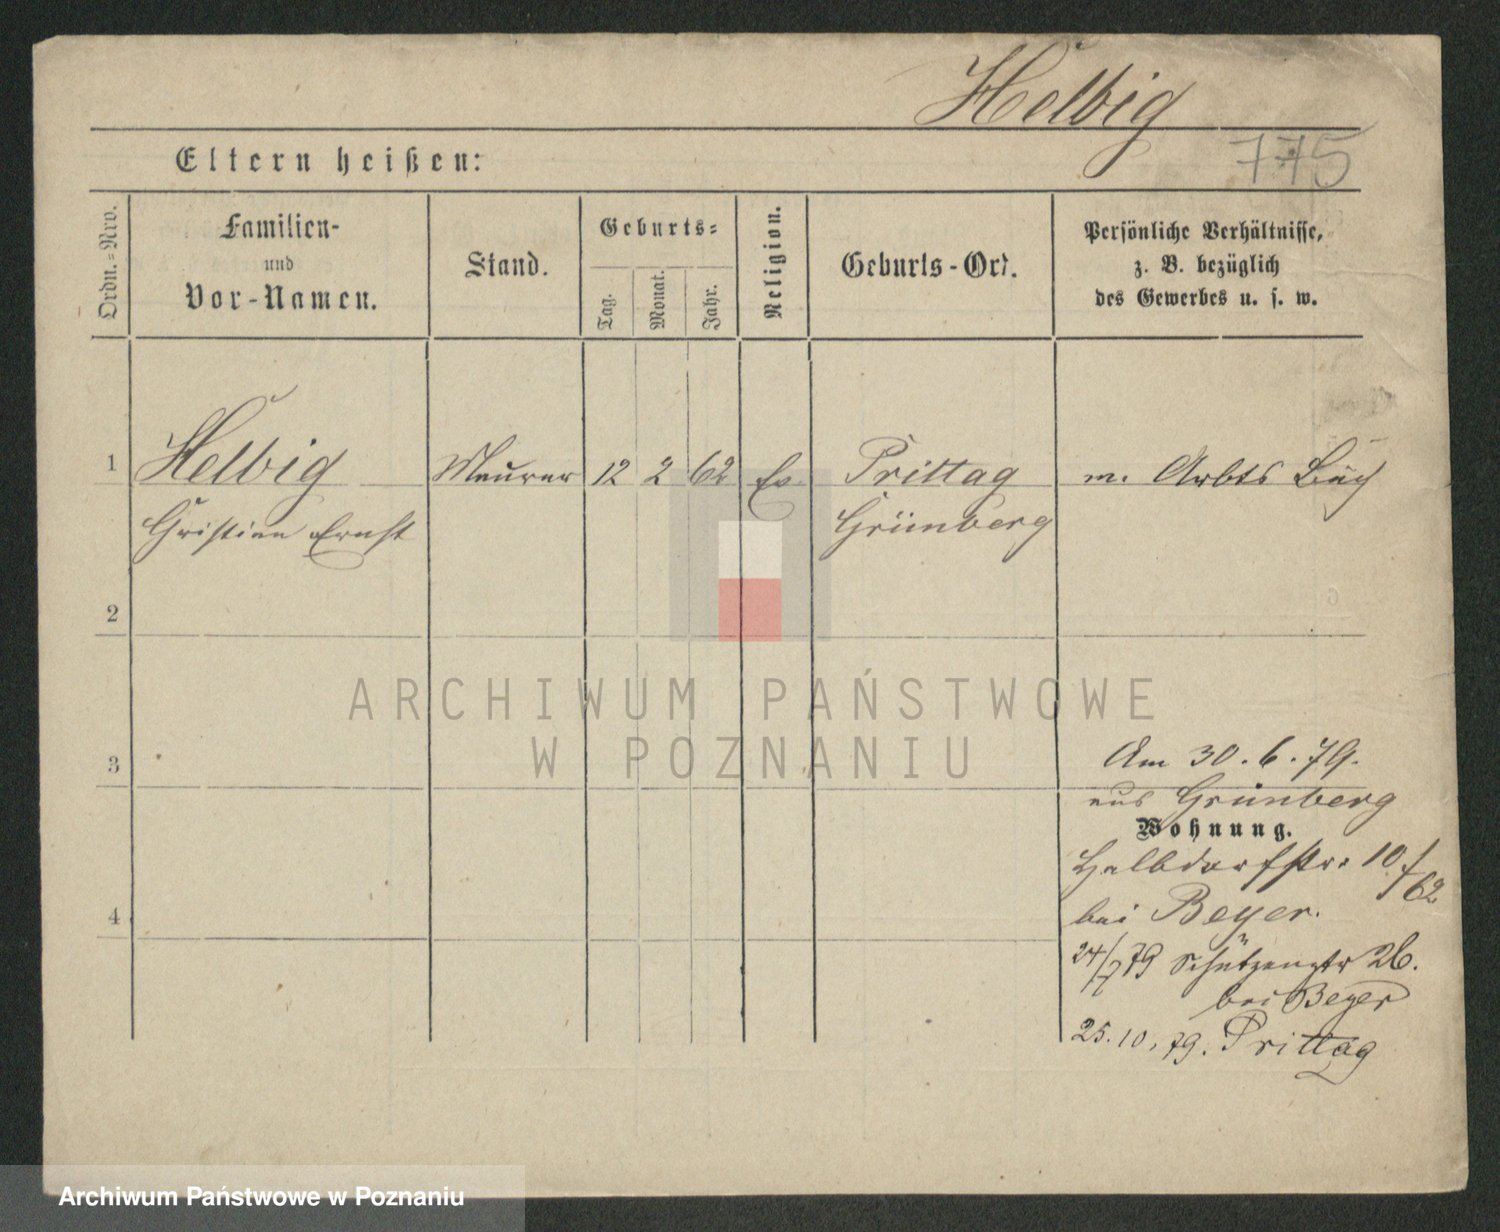 Helbig
775
Eltern heißen:
Ordn.-Nro.
Familien-
und
Vor-Namen.
Stand.
Geburts-
Tag.
Monat.
Jahr.
Religion.
Geburts-Ort.
Persönliche Verhältnisse,
z. B. bezüglich
des Gewerbes u. s. w.
1 Helbig Maurer 12 2 62 Ev. Prittag m. Arbts Buch
Christian Ernst Grünberg
2
ARCHIWUM PAŃSTWOWE
W POZNANIU
3
Am 30.6.79.
aus Grünberg
Wohnung.
Halbdorfstr. 10./62
4
bei Beyer.
24/7 79 Schützenstr 26.
bei Beyer
25.10.79. Prittag
Archiwum Państwowe w Poznaniu